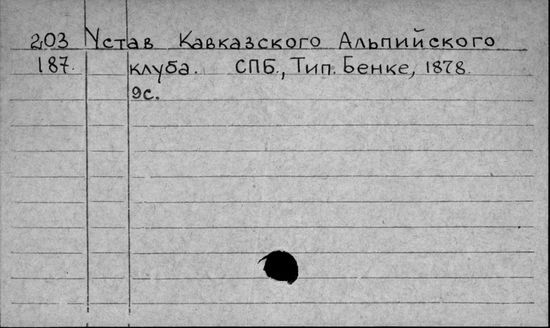 203 Устав Кавказского Альпийского
187. клуба. СПБ., Тип. Бенке, 1878.
9с.